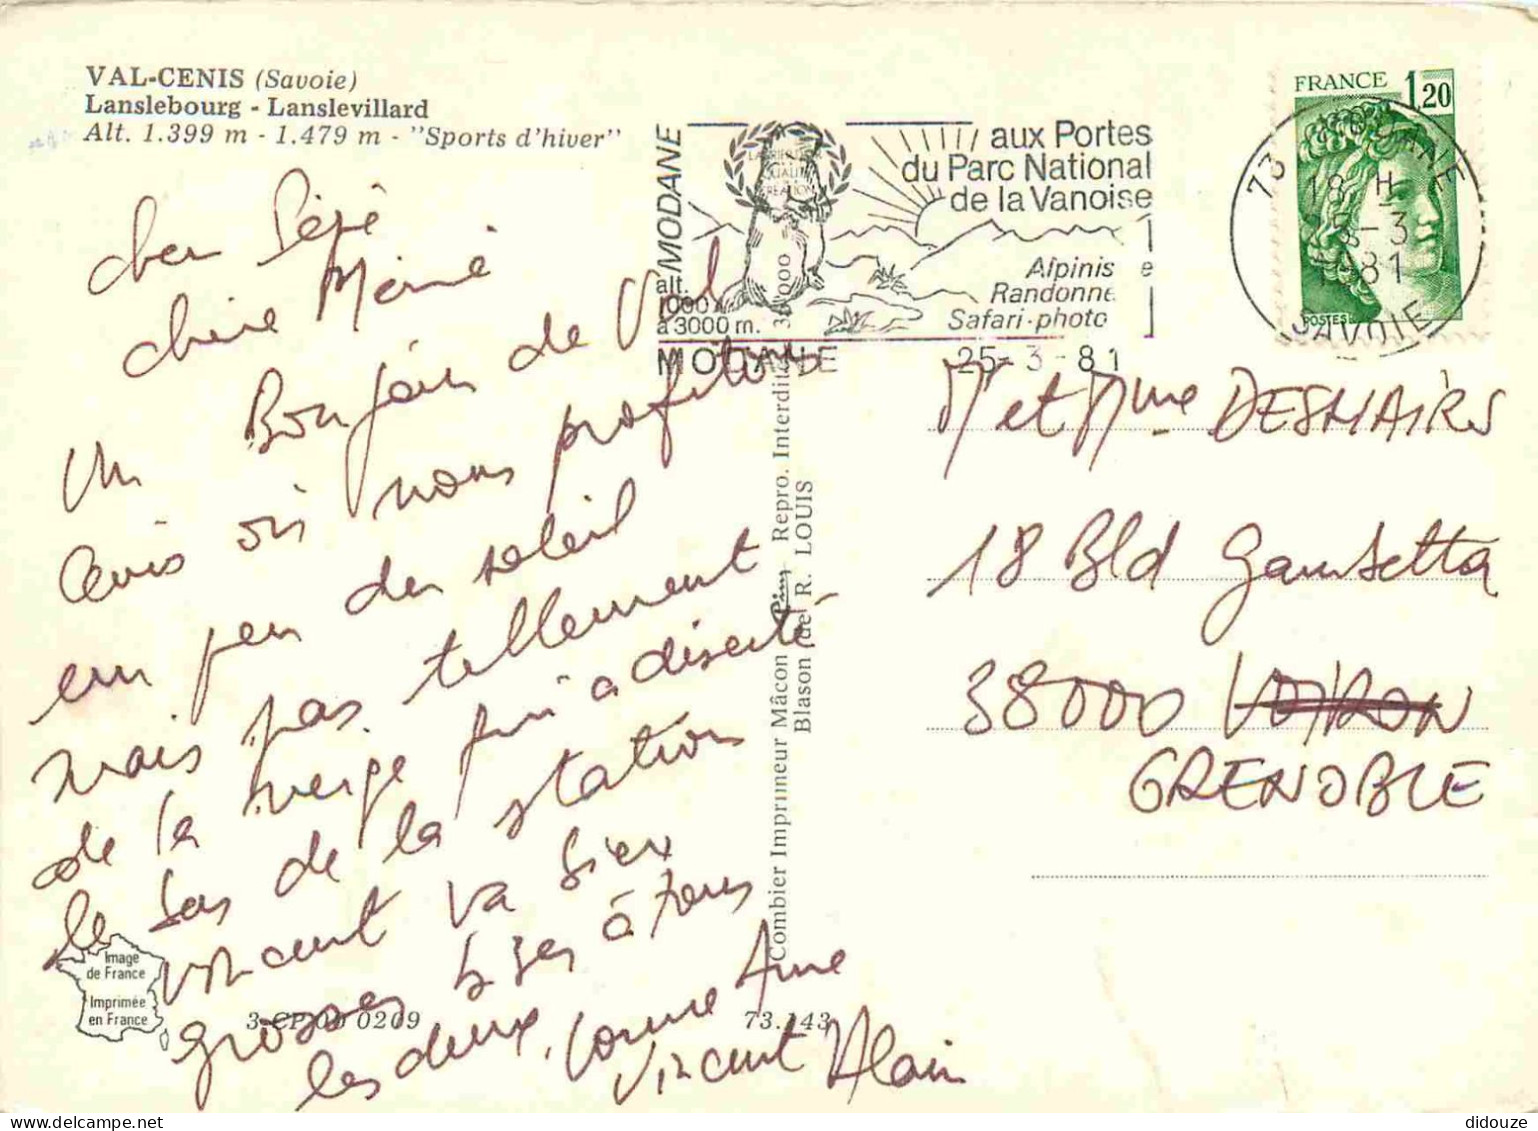 VAL-CENIS (Savoie)
Lanslebourg - Lanslevillard
Alt. 1.399 m - 1.479 m - "Sports d'hiver"
MODANE
alt.
1000
à 3000 m.
LAURIER
QUALITÉ
CRÉATION
aux Portes
du Parc National
de la Vanoise
Alpinis e
Randonne
Safari-photo
MODANE 25-3-81
FRANCE 1,20
POSTES
73 MODANE
18 H
25-3
1981
SAVOIE
cher Pépé
chère Mémé
Un Bonjour de Val
Cenis où nous profitons
un peu du soleil
mais pas tellement
de la neige qui a déserté
le bas de la station
Vincent va bien
grosses bises à tous
les deux.
Anne
Vincent Alain
M et Mme DESMAIRS
18 Bld Gambetta
38000 VOIRON
GRENOBLE
Combier Imprimeur Mâcon Repro. Interdite 30.000
Blason de R. LOUIS
Image
de France
Imprimée
en France
3 CP 00 0209
73.143
didouze - delcampe.net